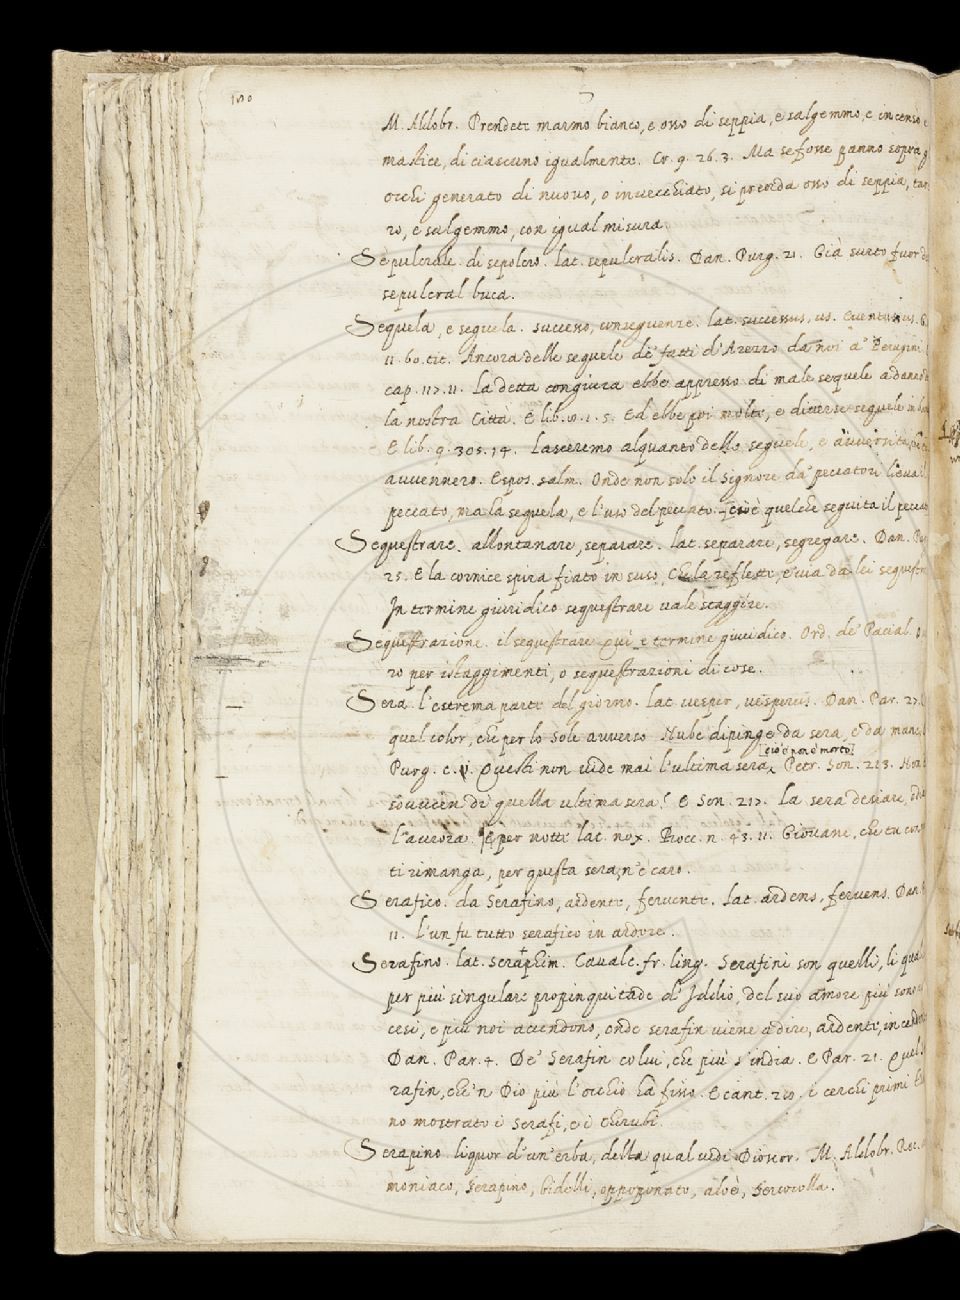 M. Aldobr. Prendete marmo bianco, e osso di seppia, e salgemmo, e incenso
mastice, di ciascuno igualmente. Cr. 9. 26. 3. Ma se fosse panno sopra
occhi generato di nuovo, o invecchiato, si prenda osso di seppia,
ro, e salgemmo, con igual misura.
Sepulcrale. di sepolcro. lat. sepulcralis. Dan. Purg. 21. Già surto fuor
sepulcral buca.
Sequela, e seguela. successo, conseguenze. lat. successus, us. eventus, us.
11. 60. tit. Ancora delle seguele de' fatti d'Arezzo da noi a' Perugini
cap. 117. 11. la detta congiura ebbe appresso di male sequele a danno
la nostra Città. E lib. 1. 5. Ed ebbe poi molte, e diverse seguele in
E lib. 9. 305. 14. lasceremo alquanto dello seguele, e avversità,
avvennero. Espos. salm. Onde non solo il Signore da' peccatori lieva il
peccato, ma la seguela, e l'uso del peccato. cioè quel che seguita il
Sequestrare. allontanare, separare. lat. separare, segregare. Dan.
25. E la cornice spira fiato in suso, Che la reflette, e via da lei
In termine giuridico sequestrare vale staggire.
Sequestrazione. il sequestrare qui è termine giuridico. Ord. de' Pacial.
ro per istaggimenti, o sequestrazioni di cose.
Sera. l'estrema parte del giorno. lat. vesper, vesperus. Dan. Par. 27.
quel color, che per lo Sole avverso Nube dipinge da sera, e da
[cioè non è morto]
Purg. c. 1. Questi non vide mai l'ultima sera, Petr. Son. 213.
sovvien di quella ultima sera? E Son. 217. La sera desiare,
l'aurora. E per notte lat. nox. Bocc. n. 43. 11. Giovane, che tu
ti rimanga, per questa sera, n'è caro.
Serafico. da Serafino, ardente, fervente. lat. ardens, fervens. Dan.
11. l'un fu tutto serafico in ardore.
Serafino. lat. seraphim. Cavalc. fr. ling. Serafini son quelli, li
per più singulare propinquitade di Iddio, del suo amore più sono
cesi, e più noi accendono, onde serafin viene a dire, ardente,
Dan. Par. 4. De' Serafin colui, che più s'india. E Par. 21.
rafin, che 'n Dio più l'occhio ha fisso. E cant. 28. i cerchi primi
no mostrato i Serafi, e i cherubi.
Serapino. liquor d'un'erba, della qual vedi Dioscor. M. Aldobr.
moniaco, serapino, bidelli, oppoponato, aloè, sercocolla.